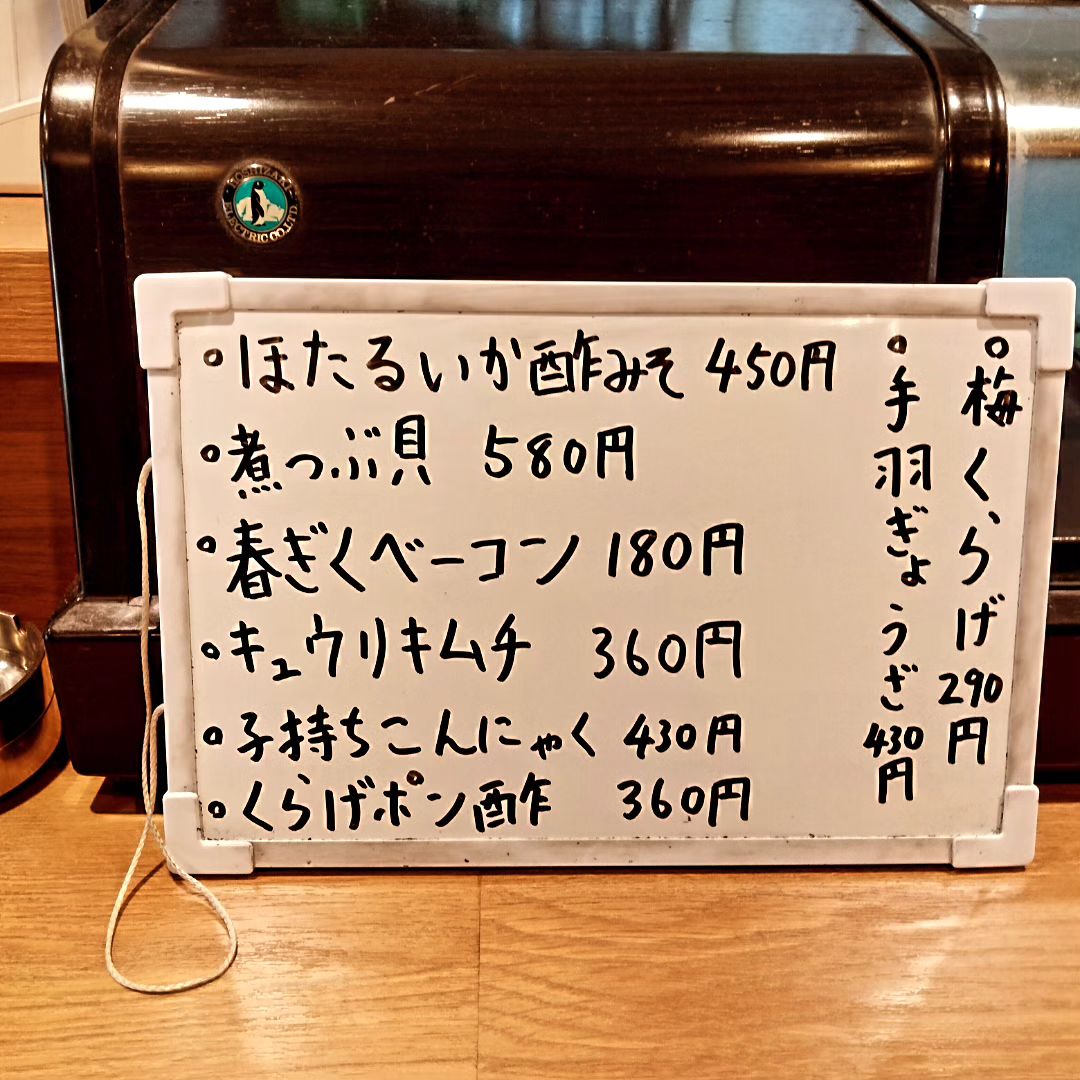 HOSHIZAKI
ELECTRIC CO.LTD
ほたるいか酢みそ 450円
煮つぶ貝 580円
春ぎくベーコン 180円
キュウリキムチ 360円
子持ちこんにゃく 430円
くらげポン酢 360円
梅くらげ 290円
手羽ぎょうざ 430円